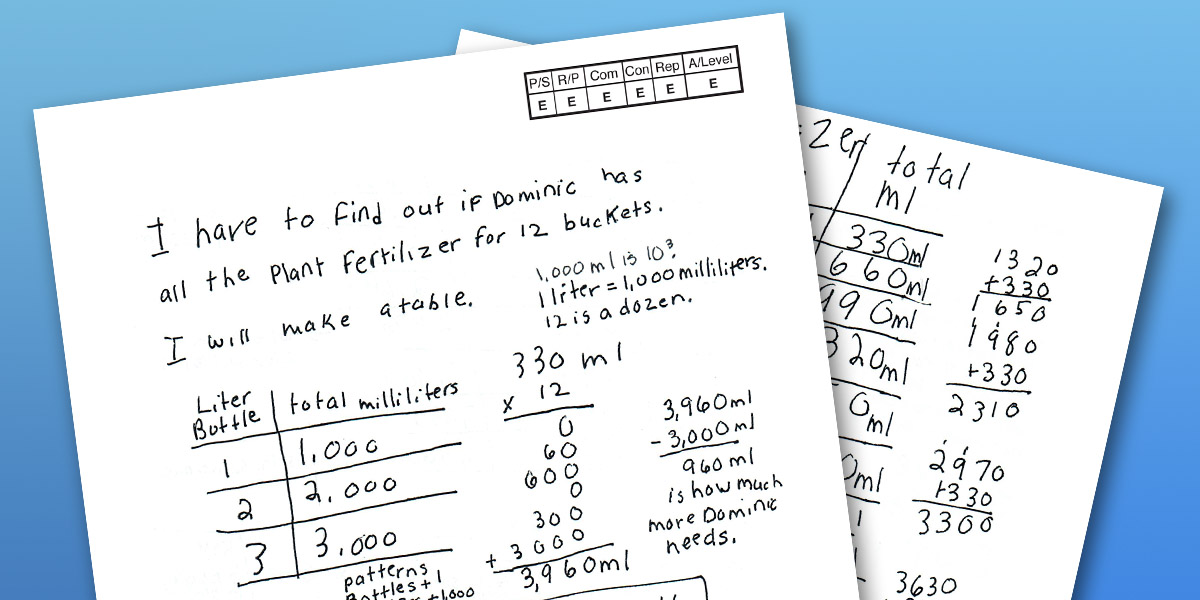 P/S R/P Com Con Rep A/Level
E E E E E E
I have to find out if Dominic has
all the Plant Fertilizer for 12 buckets.
I will make a table.
1,000 ml is 10³.
1 liter = 1,000 milliliters.
12 is a dozen.
Liter Bottle total milliliters
1 1,000
2 2,000
3 3,000
patterns
Bottles + 1
+1,000
330 ml
x 12
0
60
600
0
300
+ 3000
3,960ml
3,960ml
- 3,000ml
960 ml
is how much
more Dominic
needs.
total
ml
330ml
660ml
990ml
320ml
0ml
0ml
1320
+330
1650
1980
+330
2310
2970
+330
3300
3630